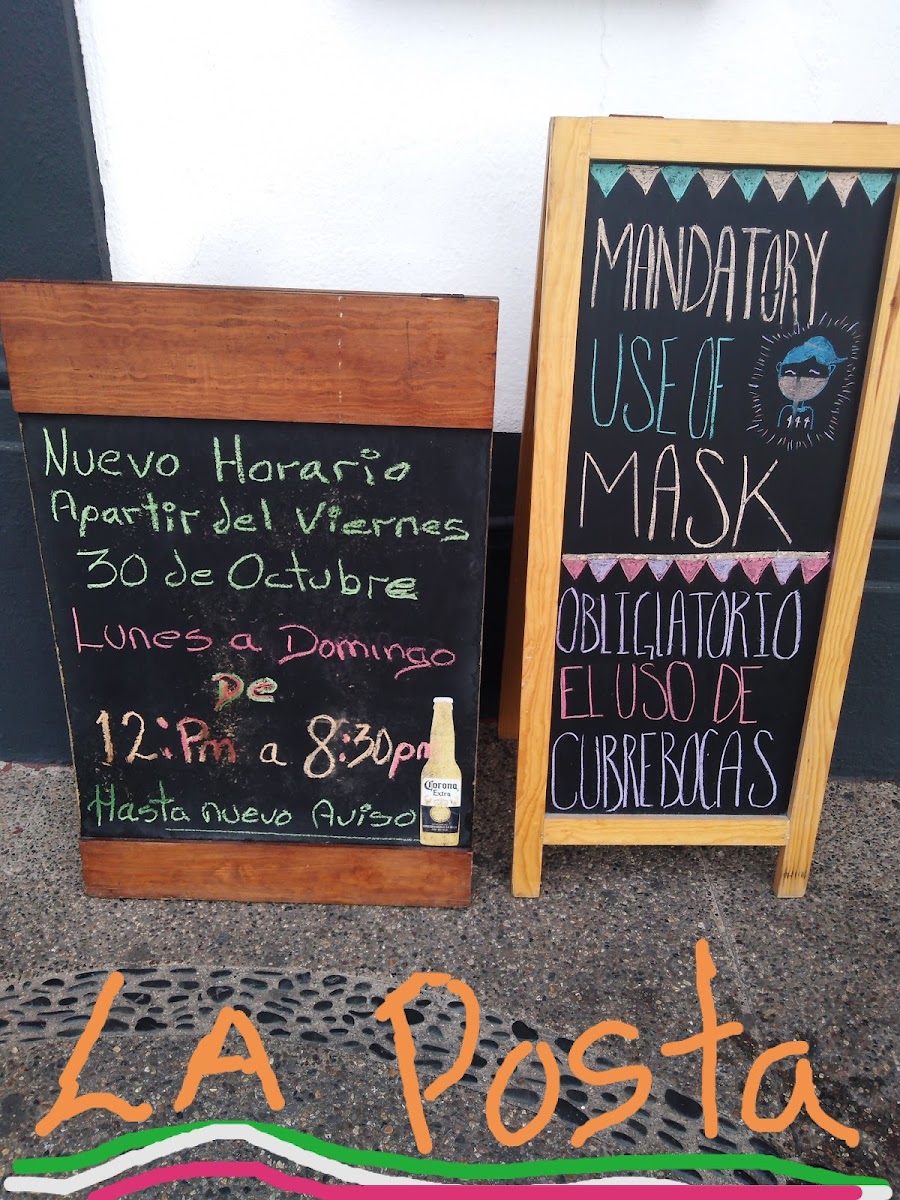 Nuevo Horario
Apartir del Viernes
30 de Octubre
Lunes a Domingo
De
12:Pm a 8:30pm
Hasta nuevo Aviso
Corona
Extra
MANDATORY
USE OF
MASK
OBLIGIATORIO
EL USO DE
CUBREBOCAS
LA Posta